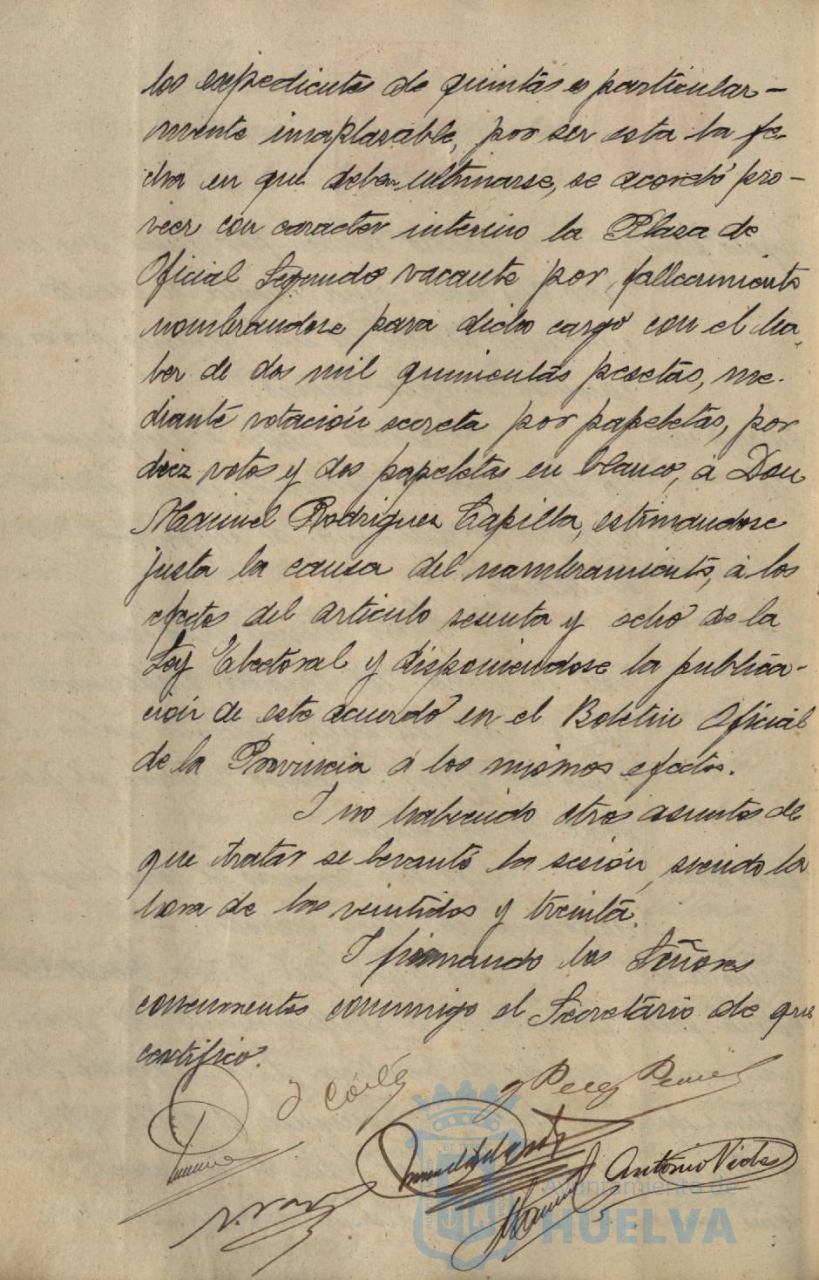 los expedientes de quintas es particular-
mente inaplasable, por ser esta la fe-
cha en que deben ultimarse, se acordó pro-
veer con caracter interino la Plasa de
Oficial Segundo vacante por fallecimiento
nombrandose para dicho cargo con el ha-
ber de dos mil quinientas pesetas, me-
diante votación secreta por papeletas, por
diez votos y dos papeletas en blanco, á Don
Manuel Rodriguez Capilla, estimandose
justa la causa del nombramiento, á los
efectos del articulo sesenta y ocho de la
Ley Electoral y disponiendose la publica-
ción de este acuerdo en el Boletin Oficial
de la Provincia á los mismos efectos.
I no habiendo otros asuntos de
que tratar se levantó la sesión, siendo la
hora de las veintidos y treinta.
I firmando los Señores
concurrentes conmigo el Secretario de que
certifico.
Antonio Vides
Ayuntamiento de
HUELVA